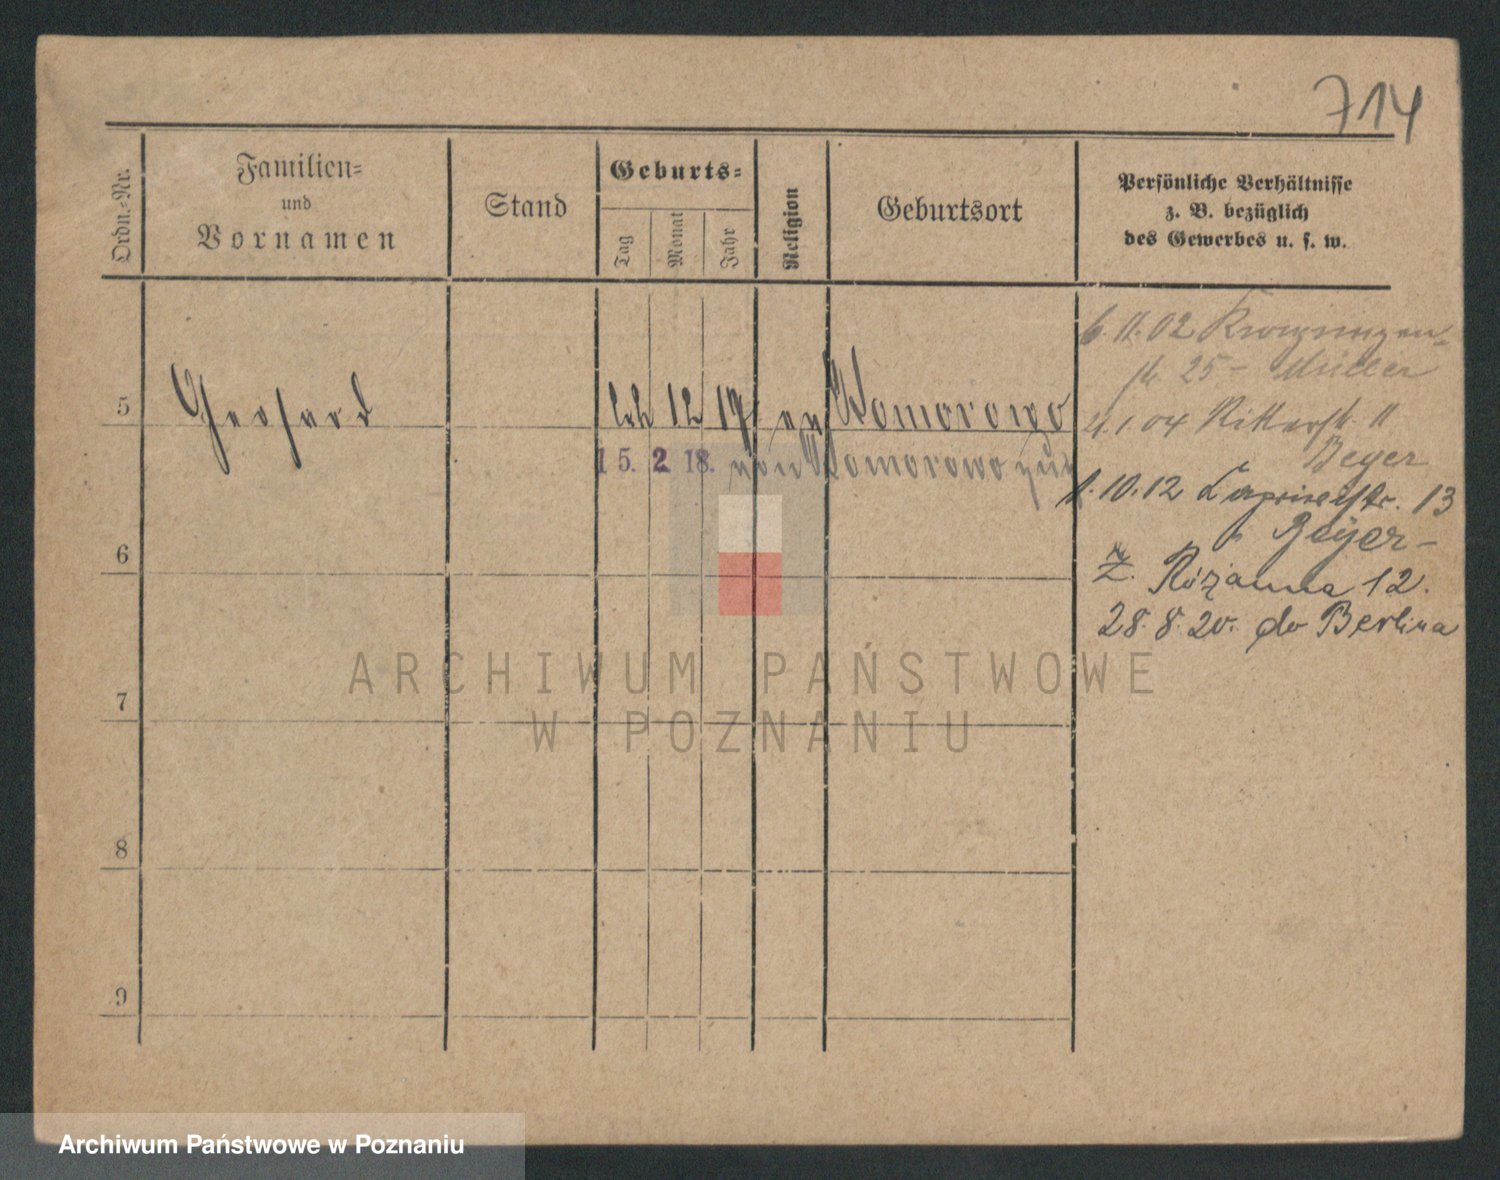 714
Ordn.-Nr.
Familien-
und
Vornamen
Stand
Geburts-
Tag
Monat
Jahr
Religion
Geburtsort
Persönliche Verhältnisse
z. B. bezüglich
des Gewerbes u. s. w.
6.11.02
25 - Müller
5 Gerhard 12 17 ev Komorowo
1.04 Ritterstr. 11
Beyer
15. 2. 18. von Komorowo zur
1.10.12 13
Beyer-
6
Z. Różanna 12.
28.8.20. do Berlina
ARCHIWUM PAŃSTWOWE
W POZNANIU
7
8
9
Archiwum Państwowe w Poznaniu